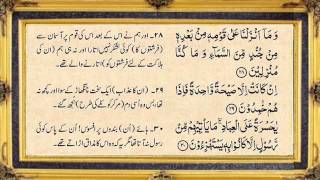 وَمَآ اَنْزَلْنَا عَلٰی قَوْمِهٖ مِنْۢ بَعْدِهٖ
مِنْ جُنْدٍ مِّنَ السَّمَآءِ وَمَا كُنَّا
مُنْزِلِیْنَ ﴿۲۸﴾
اِنْ كَانَتْ اِلَّا صَیْحَةً وَّاحِدَةً فَاِذَا
هُمْ خٰمِدُوْنَ ﴿۲۹﴾
یٰحَسْرَةً عَلَی الْعِبَادِ ۚ مَا یَاْتِیْهِمْ مِّنْ
رَّسُوْلٍ اِلَّا كَانُوْا بِهٖ یَسْتَهْزِءُوْنَ ﴿۳۰﴾
۲۸۔ اور ہم نے اس کے بعد اس کی قوم پر آسمان سے
(فرشتوں کا) کوئی لشکر نہیں اتارا اور نہ ہی ہم (ان کی
ہلاکت کے لئے فرشتوں کو) اتارنے والے تھے۔
۲۹۔ (ان کا عذاب) ایک سخت چنگھاڑ کے سوا اور کچھ نہ
تھا، بس وہ اسی دم (مر کر کوئلے کی طرح) بجھ گئے۔
۳۰۔ ہائے (ان) بندوں پر افسوس! ان کے پاس کوئی
رسول نہ آتا تھا مگر یہ کہ وہ اس کا مذاق اڑاتے تھے۔